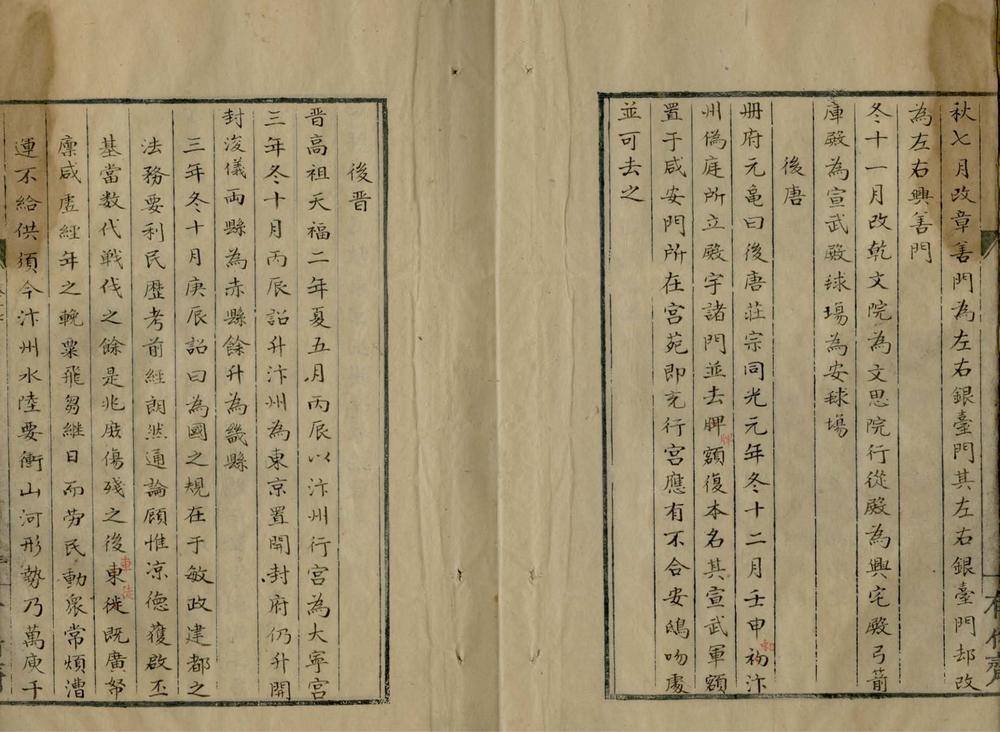 秋七月改章善門為左右銀臺門其左右銀臺門却改
為左右興善門
冬十一月改乾文院為文思院行從殿為興宅殿弓箭
庫殿為宣武殿毬場為安毬場
後唐
冊府元龜曰後唐莊宗同光元年冬十二月壬申初汴
州偽庭所立殿宇諸門並去牌額復本名其宣武軍額
置于咸安門所在宮苑即充行宮應有不合安鴟吻處
並可去之
後晋
晋高祖天福二年夏五月丙辰以汴州行宮為大寧宮
三年冬十月丙辰詔升汴州為東京置開封府仍升開
封浚儀両縣為赤縣餘升為畿縣
三年冬十月庚辰詔曰為國之規在于敏政建都之
法務要利民歷考前經朗然通論顧惟凉德獲啟丕
基當数代戦伐之餘是兆庶傷殘之後東徙既廣帑
車 徒
廩咸虛經年之輓粟飛芻継日而勞民動衆常煩漕
運不給供須今汴州水陸要衝山河形勢乃萬庾千